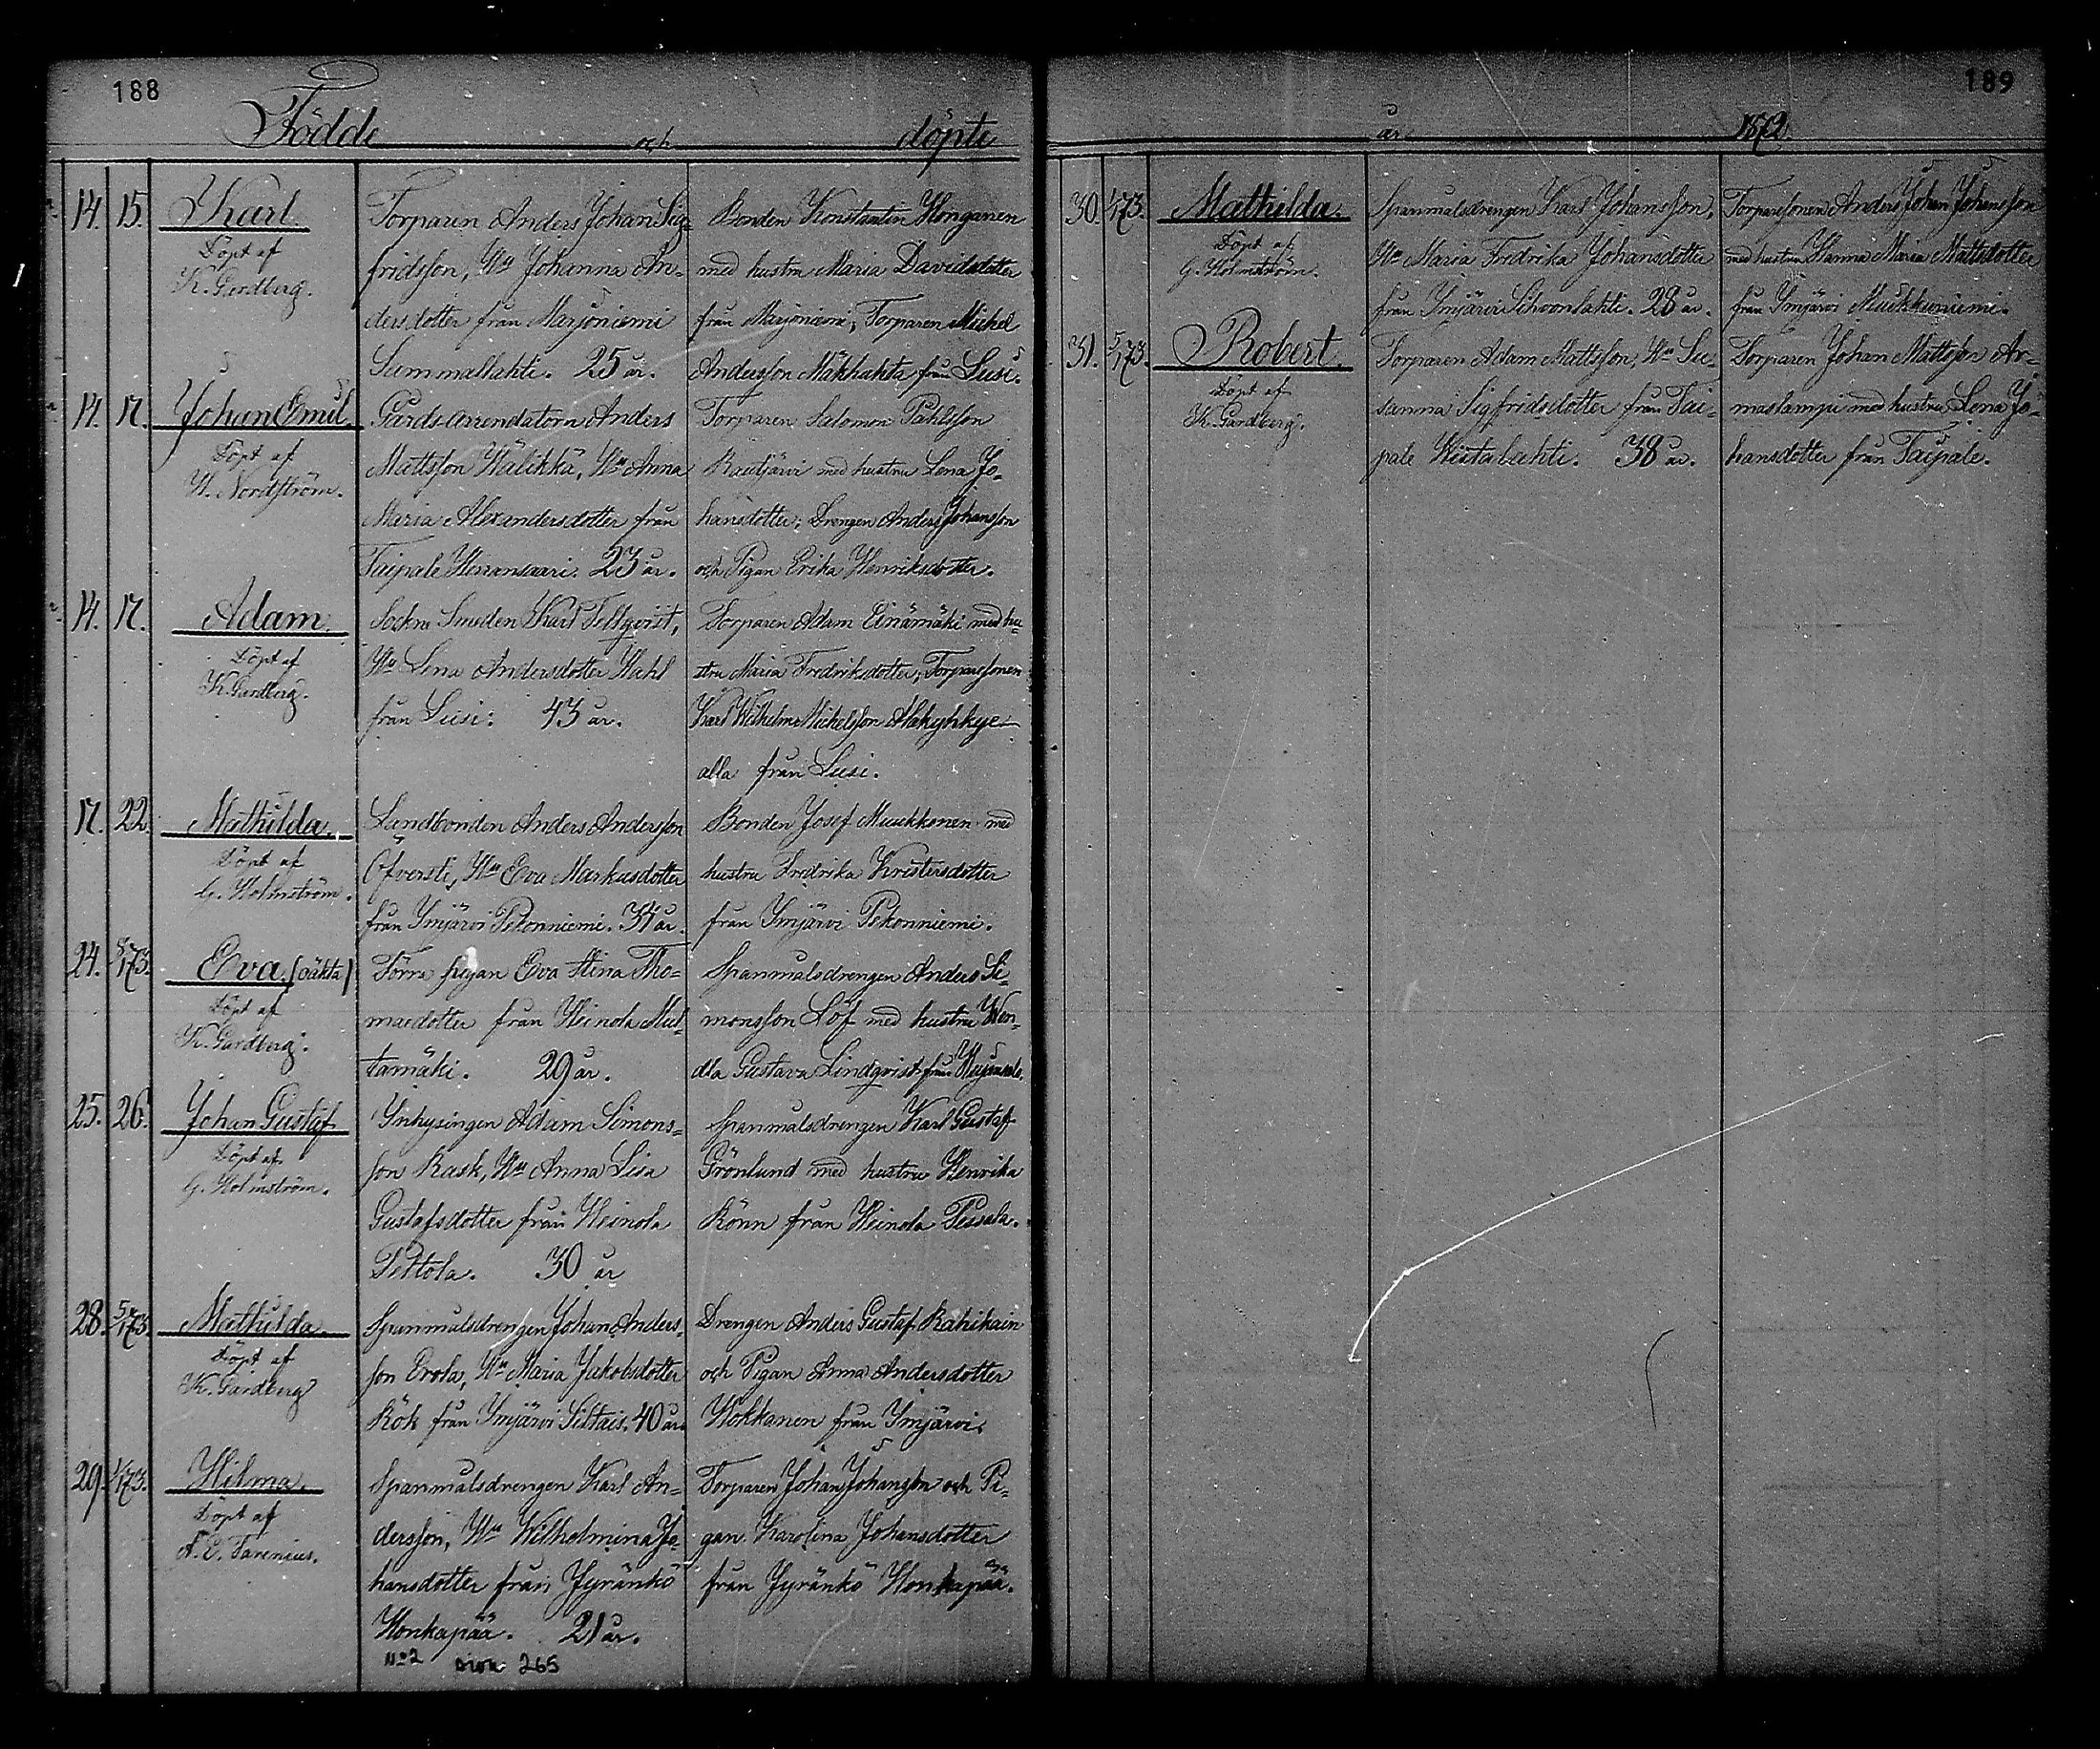 188
Födde och döpte
14. 15. Karl.
Döpt af
K. Gardberg.
Torparen Anders Johan Sig-
fridsson, Hu Johanna An-
dersdotter från Marjoniemi
Summallahti. 25 år.
Bonden Konstantin Honganen
med hustru Maria Davidsdotter
från Marjoniemi; Torparen Michel
Andersson Mäkhahta från Lusi.
14. 17. Johan Emil.
Döpt af
W. Nordström.
Gårds-arrendatorn Anders
Mattsson Wälikkä, Hu Anna
Maria Alexandersdotter från
Taipale Herransaari. 23 år.
Torparen Salomon Påhlsson
Rautjärvi med hustru Lena Jo-
hansdotter; Drengen Anders Johansson
och Pigan Erika Henriksdotter.
14. 17. Adam.
Döpt af
K. Gardberg.
Sockne Smeden Karl Tellqvist,
Hu Lena Andersdotter Wahl
från Lusi. 43 år.
Torparen Adam Einämäki med hu-
stru Maria Fredriksdotter; Torparesonen
Karl Wilhelm Michelsson
alla från Lusi.
17. 22. Mathilda.
Döpt af
G. Holmström.
Landbonden Anders Andersson
Öfversti, Hu Eva Markusdotter
från Ymjärvi Pekonniemi. 34 år.
Bonden Josef Muukkonen med
hustru Fredrika Kristersdotter
från Ymjärvi Pekonniemi.
24. 5/1 73. Eva. (oäkta)
Döpt af
K. Gardberg.
Förra pigan Eva Stina Tho-
masdotter från Heinola Mul-
tamäki. 29 år.
Spanmålsdrengen Anders Si-
monsson Löf med hustru Wen-
dla Gustava Lindqvist från
25. 26. Johan Gustaf
Döpt af
G. Holmström.
Ynhysingen Adam Simons-
son Rask, Hu Anna Lisa
Gustafsdotter från Heinola
Pettola. 30 år
Spanmålsdrengen Karl Gustaf
Grönlund med hustru Henrika
Rönn från Heinola Pessala.
28. 5/1 73. Mathilda.
Döpt af
K. Gardberg
Spanmålsdrengen Johan Anders-
son Erola, Hu Maria Jakobsdotter
Rök från Ymjärvi Siltais. 40 år.
Drengen Anders Gustaf Rahikain
och Pigan Anna Andersdotter
Wokkanen från Ymjärvi.
29. 1/1 73. Hilma.
Döpt af
A. E. Farenius.
Spanmålsdrengen Karl An-
dersson, Hu Wilhelmina Jo-
hansdotter från Jyränkö
Honkapää. 21 år.
Torparen Johan Johansson och Pi-
gan Karolina Johansdotter
från Jyränkö Honkapää.
No 2 sivu 265
189
år 1872
30. 1/1 73. Mathilda.
Döpt af
G. Holmström.
Spanmålsdrengen Karl Johansson,
Hu Maria Fredrika Johansdotter
från Ymjärvi Sihvonlahti. 28 år.
Torparesonen Anders Johan Johansson
med hustru Hanna Maria Mattsdotter
från Ymjärvi Muukkoniemi.
31. 5/1 73. Robert.
Döpt af
K. Gardberg.
Torparen Adam Mattsson, Hu Su-
sanna Sigfridsdotter från Tai-
pale Wiistalahti. 38 år.
Torparen Johan Mattsson Ar-
maslampi med hustru Lena Jo-
hansdotter från Taipale.